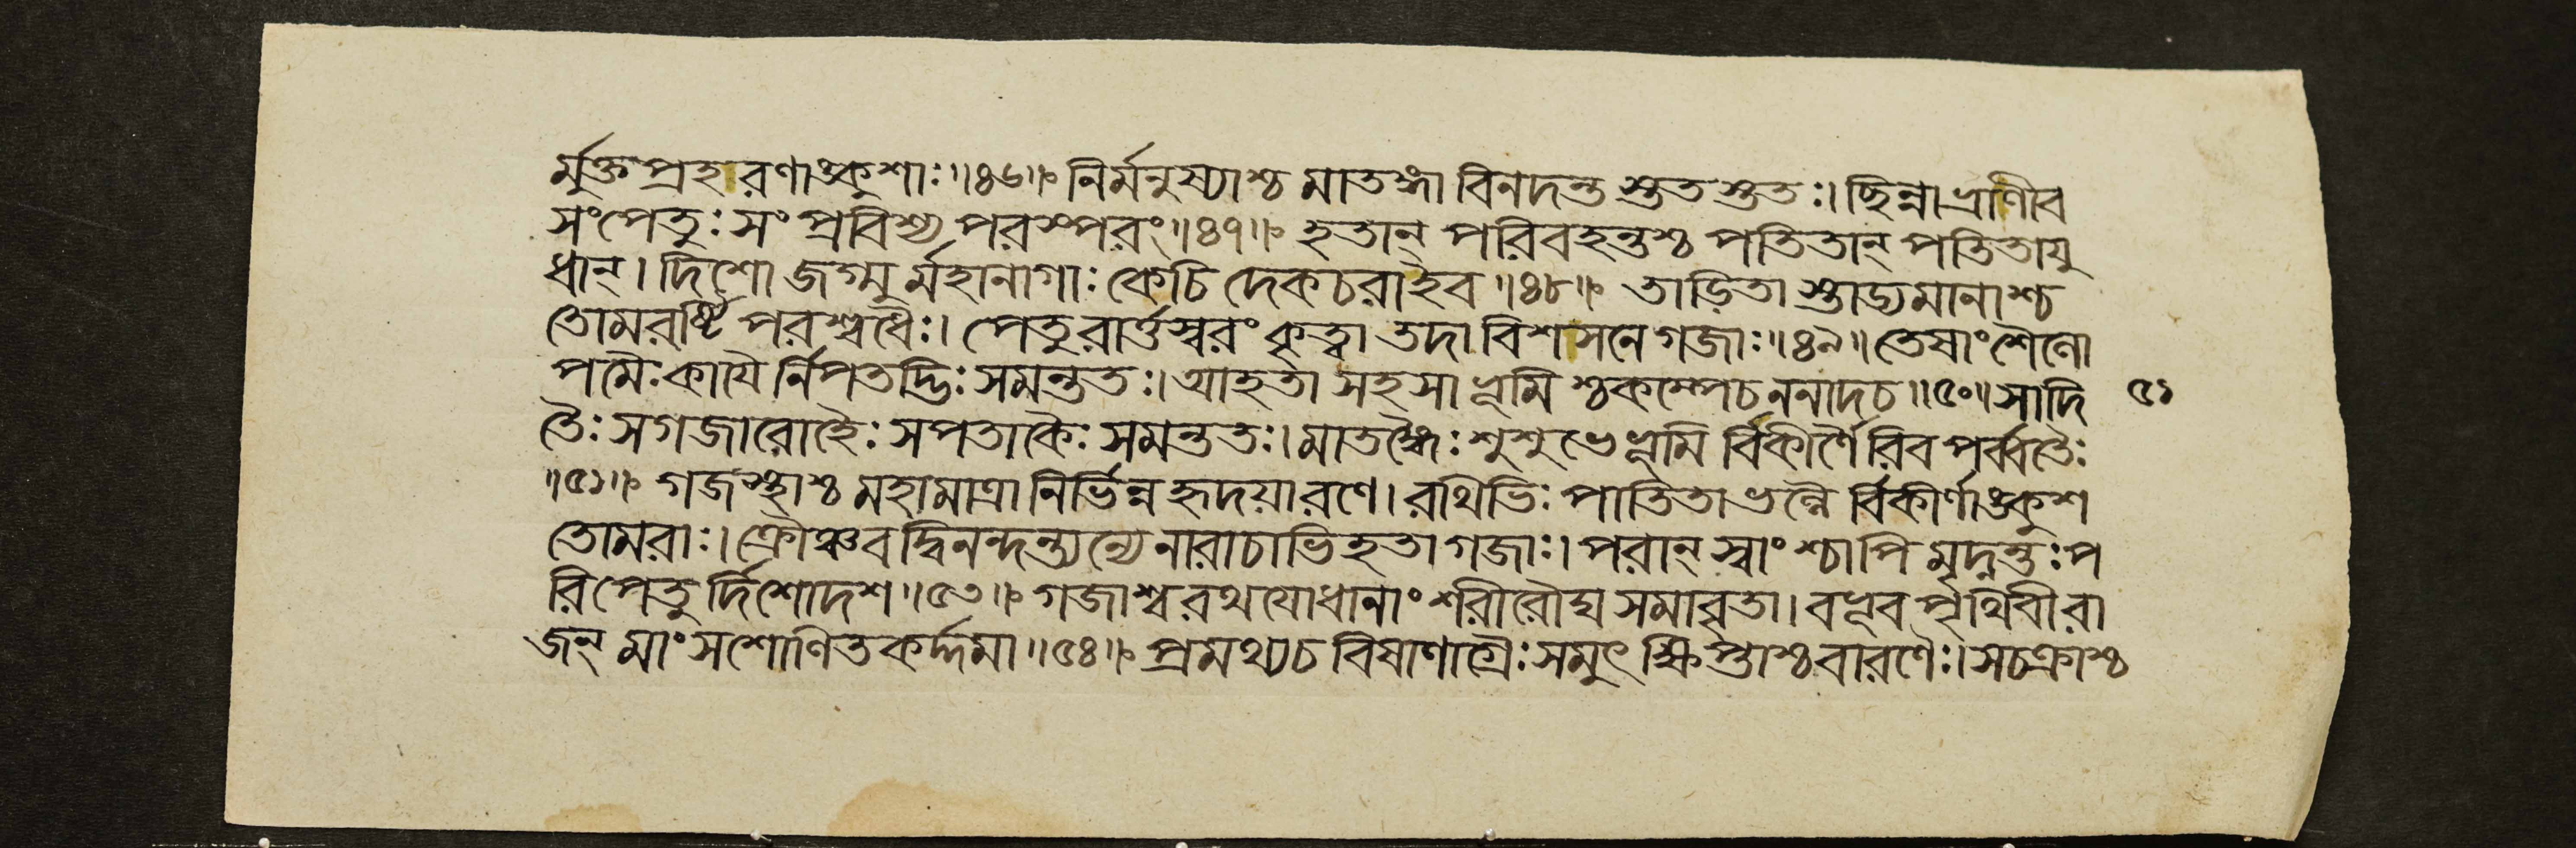 র্মুক্তপ্রহারণাঙ্কুশাঃ॥৪৬॥ নির্মনুষ্যাশ্চ মাতঙ্গা বিনদন্ত স্ততস্ততঃ। ছিন্নাভ্রাণীব
সংপেতুঃ সংপ্রবিশ্য পরস্পরং॥৪৭॥ হতান্ পরিবহন্তশ্চ পতিতান্ পতিতাযু
ধান্। দিশো জগ্মুর্মহানাগাঃ কেচি দেকচরাইব॥৪৮॥ তাড়িতা স্তাড্যমানাশ্চ
তোমরর্ষ্টি পরশ্বধৈঃ। পেতুরার্ত্তস্বরং কৃত্বা তদা বিশসনে গজাঃ॥৪৯॥ তেষাং শৈলো
পমৈঃ কাযৈ র্নিপতদ্ভিঃ সমন্ততঃ। আহতা সহসা ভূমি শ্চকম্পেচ ননাদচ॥৫০॥ সাদি ৫১
তৈঃ সগজারোহৈঃ সপতাকৈঃ সমন্ততঃ। মাতঙ্গৈঃ শুশুভে ভূমি র্বিকীর্ণৈরিব পর্ব্বতৈঃ
॥৫১॥ গজস্থাশ্চ মহামাত্রা নির্ভিন্ন হৃদয়ারণে। রথিভিঃ পাতিতা ভল্লৈ র্বিকীর্ণাঙ্কুশ
তোমরাঃ। ক্রৌঞ্চবদ্বিনন্দন্ত্যন্যে নারাচাভিহতা গজাঃ। পরান্ স্বাংশ্চাপি মৃদ্নন্তঃ প
রিপেতু র্দিশোদশ॥৫৩॥ গজাশ্বরথযোধানাং শরীরৌঘ সমাবৃতা। বভূব পৃথিবী রা
জন্ মাংসশোণিতকর্দ্দমা॥৫৪॥ প্রমথ্যচ বিষাণাগ্রৈঃ সমুৎক্ষিপ্তাশ্চ বারণৈঃ। সচক্রাশ্চ